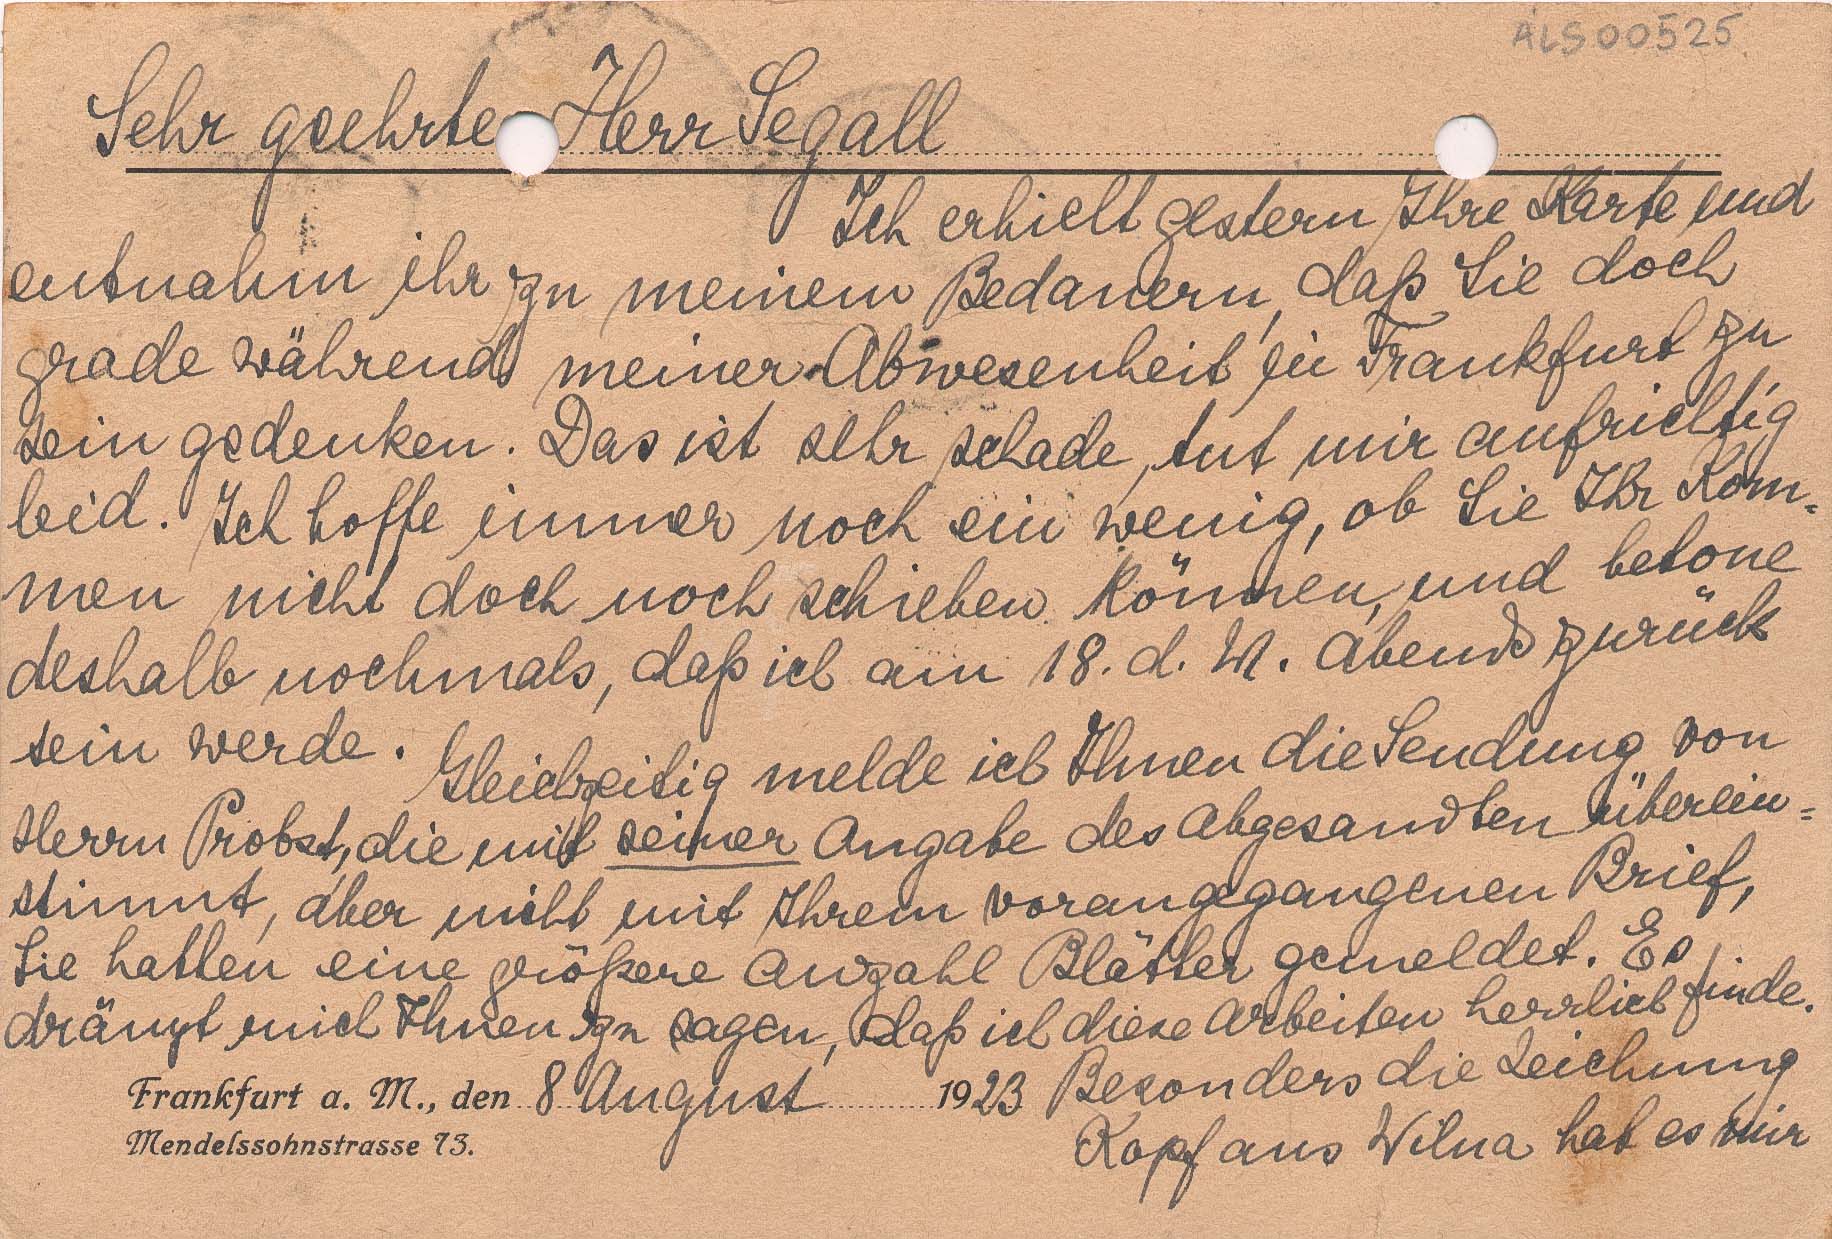 ALS00525
Sehr geehrter Herr Segall
Ich erhielt gestern Ihre Karte und
entnahm ihr zu meinem Bedauern, daß Sie doch
grade während meiner Abwesenheit in Frankfurt zu
sein gedenken. Das ist sehr schade, tut mir aufrichtig
leid. Ich hoffe immer noch ein wenig, ob Sie Ihr Kom-
men nicht doch noch schieben können, und betone
deshalb nochmals, daß ich am 18. d. M. abends zurück
sein werde. Gleichzeitig melde ich Ihnen die Sendung von
Herrn Probst, die mit seiner Angabe des Abgesandten überein-
stimmt, aber nicht mit Ihrem vorangegangenen Brief,
Sie hatten eine größere Anzahl Blätter gemeldet. Es
drängt mich Ihnen zu sagen, daß ich diese Arbeiten herrlich finde.
Besonders die Zeichnung
Kopf aus Wilna hat es mir
Frankfurt a. M., den 8 August 1923
Mendelssohnstrasse 73.